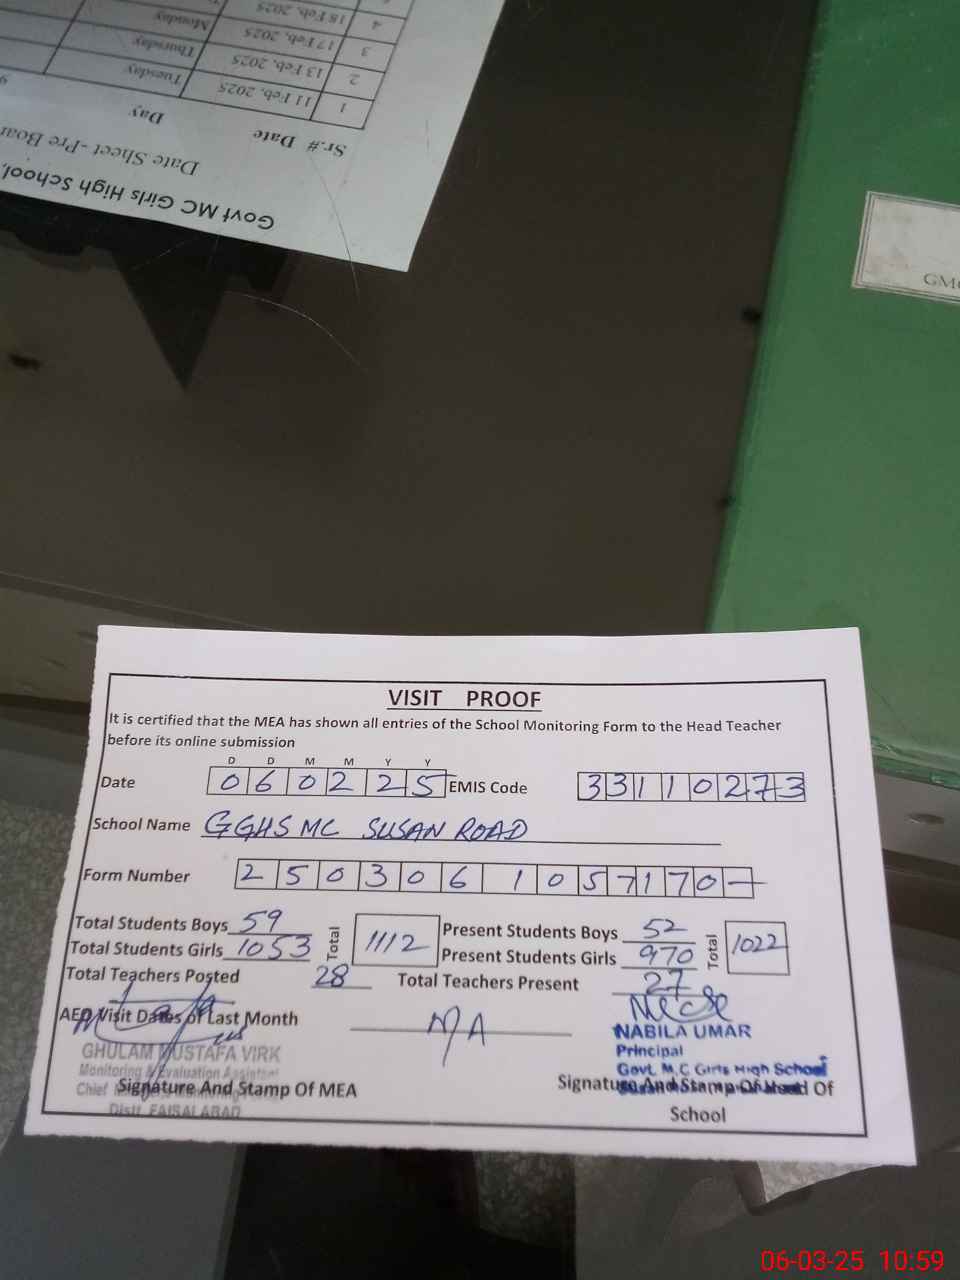 Govt MC Girls High School,
Date Sheet - Pre Boar
Sr.# Date Day
1 11 Feb, 2025 Tuesday
2 13 Feb, 2025 Thursday
3 17 Feb, 2025 Monday
4 18 Feb, 2025
GMC
VISIT PROOF
It is certified that the MEA has shown all entries of the School Monitoring Form to the Head Teacher
before its online submission
D D M M Y Y
Date 0 6 0 2 2 5 EMIS Code 3 3 1 1 0 2 7 3
School Name GGHS MC SUSAN ROAD
Form Number 2 5 0 3 0 6 1 0 5 7 1 7 0 -
Total Students Boys 59 Total 1112 Present Students Boys 52 Total 1022
Total Students Girls 1053 Present Students Girls 970
Total Teachers Posted 28 Total Teachers Present 27
AEO Visit Dates of Last Month N/A
GHULAM MUSTAFA VIRK
Monitoring & Evaluation Assistant
Chief
Distt. FAISALABAD
Signature And Stamp Of MEA
NABILA UMAR
Principal
Govt. M.C Girls High School
Signature And Stamp Of Head Of
School
06-03-25 10:59